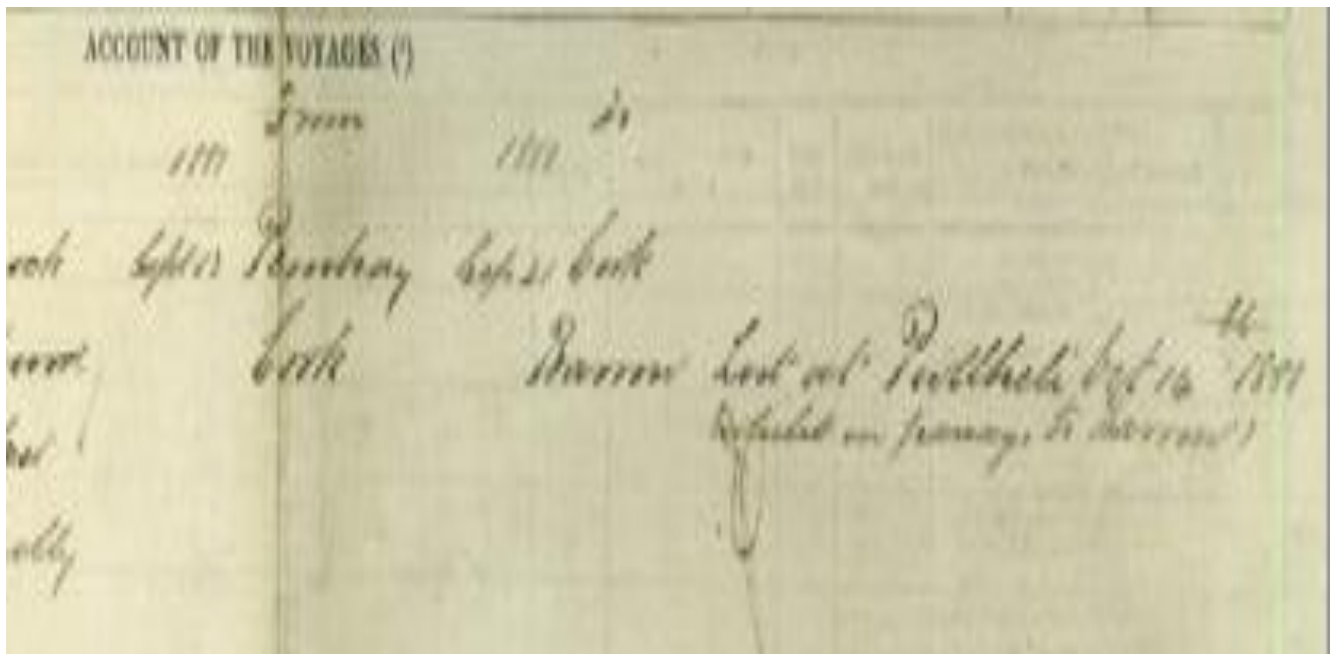 ACCOUNT OF THE VOYAGES (1)
From to
1881 1881
och Sept 13 Pembrey Sep 21 Cork
Cork Barrow Lost at Pwllheli Oct 14th 1881
whilst on passage to Barrow
olly